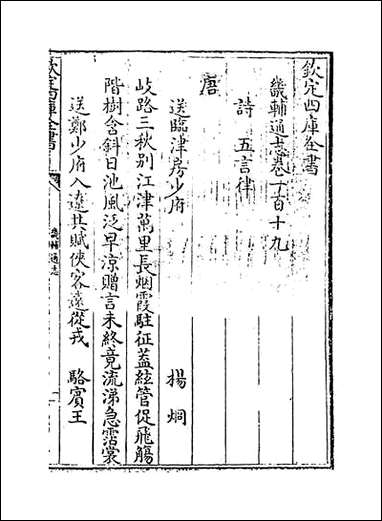 欽定四庫全書
畿輔通志卷一百十九
詩 五言律
唐
送臨津房少府 楊炯
岐路三秋别江津萬里長烟霞駐征蓋絃管促飛觴
階樹含斜日池風泛早涼贈言未終竟流涕急霑裳
送鄭少府入遼共賦俠客遠從戎 駱賓王
欽定四庫全書
畿輔通志